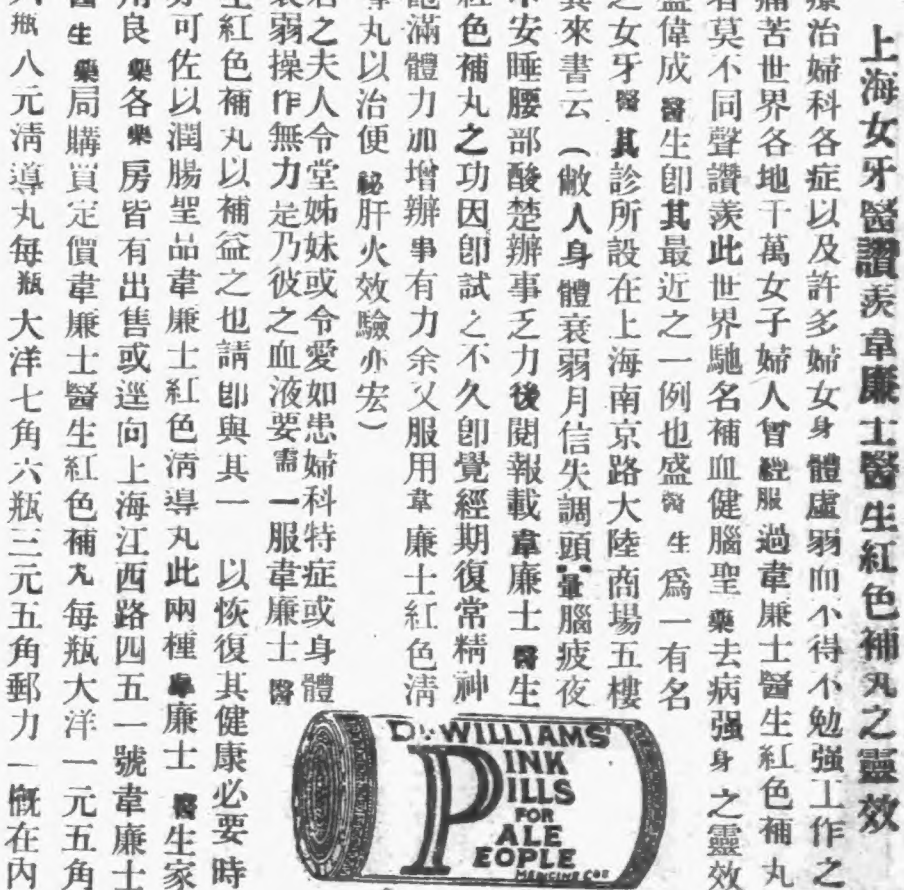 上海女牙醫讚羨韋廉士醫生紅色補丸之靈效
療治婦科各症以及許多婦女身體虛弱而不得不勉强工作之
痛苦世界各地千萬女子婦人曾經服過韋廉士醫生紅色補丸
者莫不同聲讚羨此世界馳名補血健腦聖藥去病强身之靈效
盛偉成醫生卽其最近之一例也盛醫生爲一有名
之女牙醫其診所設在上海南京路大陸商場五樓
其來書云(敝人身體衰弱月信失調頭暈腦疲夜
不安睡腰部酸楚辦事乏力後閱報載韋廉士醫生
紅色補丸之功因卽試之不久卽覺經期復常精神
飽滿體力加增辦事有力余又服用韋廉士紅色淸
導丸以治便秘肝火效驗亦宏)
君之夫人令堂姊妹或令愛如患婦科特症或身體
衰弱操作無力是乃彼之血液要需一服韋廉士醫
生紅色補丸以補益之也請卽與其一 以恢復其健康必要時
亦可佐以潤腸聖品韋廉士紅色淸導丸此兩種韋廉士醫生家
用良藥各藥房皆有出售或逕向上海江西路四五一號韋廉士
醫生藥局購買定價韋廉士醫生紅色補丸每瓶大洋一元五角
六瓶八元淸導丸每瓶大洋七角六瓶三元五角郵力一槪在內
DR. WILLIAMS'
PINK
PILLS
FOR
PALE
PEOPLE
MEDICINE CO.